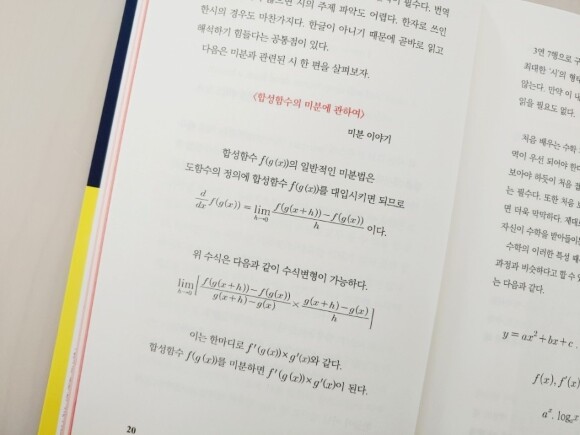 않으면 시의 주제 파악도 어렵다. 한자로 쓰인
한시의 경우도 마찬가지다. 한글이 아니기 때문에 곧바로 읽고
해석하기 힘들다는 공통점이 있다.
다음은 미분과 관련된 시 한 편을 살펴보자.
《합성함수의 미분에 관하여》
미분 이야기
합성함수 f(g(x))의 일반적인 미분법은
도함수의 정의에 합성함수 f(g(x))를 대입시키면 되므로
d/dx f(g(x)) = lim h→0 f(g(x+h))−f(g(x))/h 이다.
위 수식은 다음과 같이 수식변형이 가능하다.
lim h→0 | f(g(x+h))−f(g(x))/g(x+h)−g(x) × g(x+h)−g(x)/h |
이는 한마디로 f′(g(x))×g′(x)와 같다.
합성함수 f(g(x))를 미분하면 f′(g(x))×g′(x)이 된다.
20
3연 7행으로 구
최대한 '시'의 형태
않는다. 만약 이 내
읽을 필요도 없다.
처음 배우는 수학
역이 우선 되어야 한다
보아야 하듯이 처음 접
는 필수다. 또한 처음 보
면 더욱 막막하다. 제대로
자신이 수학을 받아들이는
수학의 이러한 특성 때
과정과 비슷하다고 할 수
는 다음과 같다.
y = ax² + bx + c
f(x), f′(x)
aˣ, logₐx